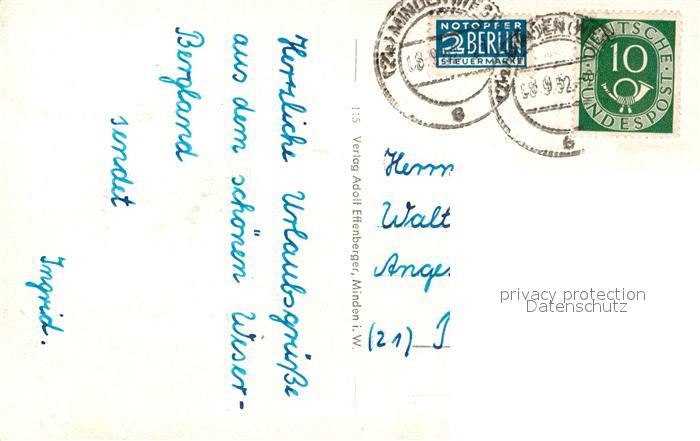 Herzliche Urlaubsgrüße
aus dem schönen Weser-
Bergland
sendet
Ingrid.
115 Verlag Adolf Effenberger, Minden i. W.
NOTOPFER
2 BERLIN
STEUERMARKE
DEUTSCHE
10
BUNDESPOST
MINDEN (WESTF
8.9.52
Herrn
Walt
Ange
(21)
privacy protection
Datenschutz